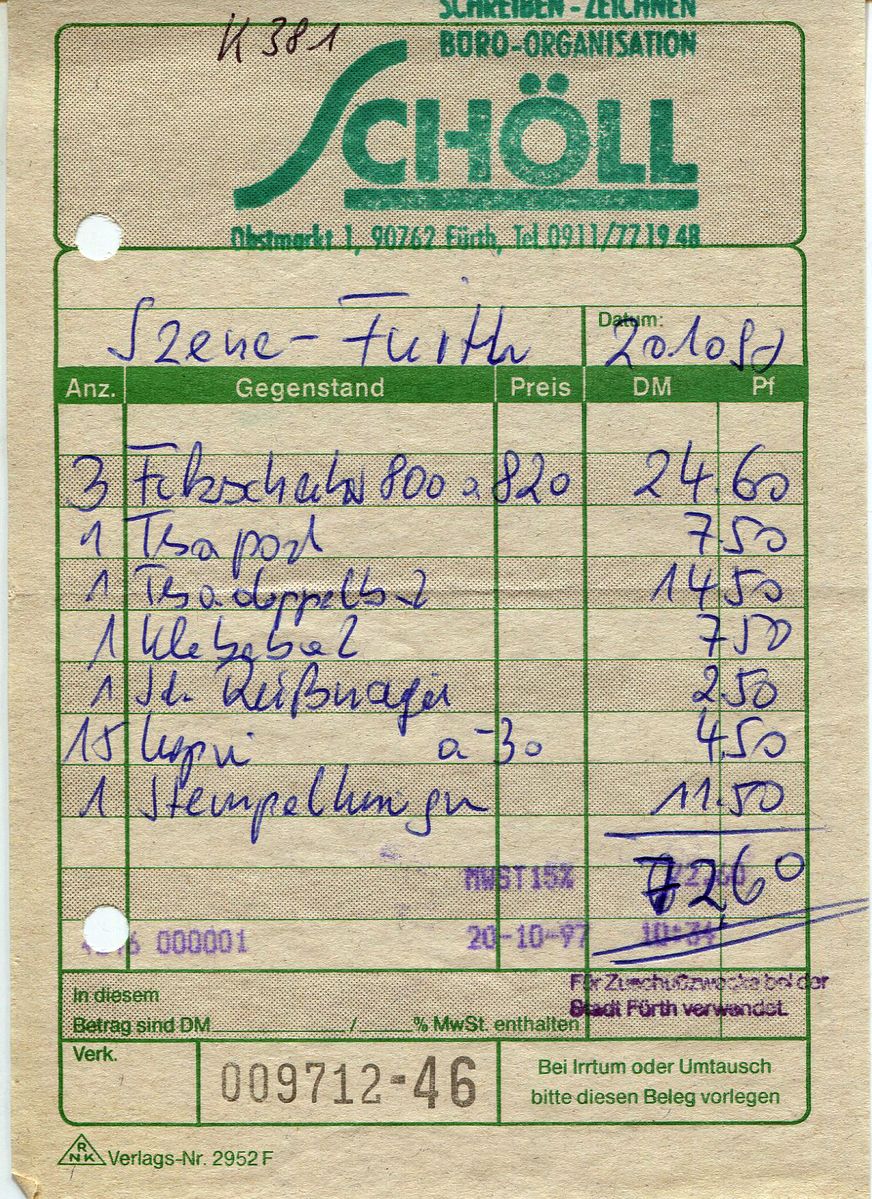 SCHREIBEN - ZEICHNEN
K 381
BÜRO-ORGANISATION
SCHÖLL
Obstmarkt 1, 90762 Fürth, Tel. 0911/77 19 48
Szene - Fürth Datum: 20.10.97
Anz. Gegenstand Preis DM Pf
3 Filzschreiber 800 a 820 24.60
1 Tesa pack 7.50
1 Tesadoppelbd 14.50
1 Klebebd 7.50
1 St. Reißnägel 2.50
15 Kopien a -30 4.50
1 11.50
MWST15% 72.60
7260
000001 20-10-97 10:34
Für Zuschußzwecke bei der
Stadt Fürth verwendet.
In diesem
Betrag sind DM / % MwSt. enthalten
Verk.
009712-46
Bei Irrtum oder Umtausch
bitte diesen Beleg vorlegen
RNK Verlags-Nr. 2952 F